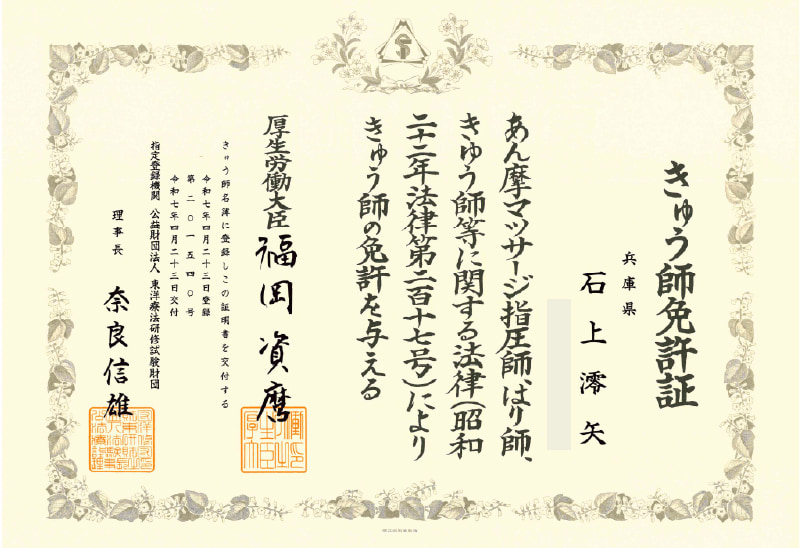 きゅう師免許証
兵庫県
石上澪矢
あん摩マッサージ指圧師、はり師、
きゆう師等に関する法律(昭和
二十二年法律第二百十七号)により
きゅう師の免許を与える
厚生労働大臣 福岡資麿
きゅう師名簿に登録しこの証明書を交付する
令和七年四月二十三日登録
第二〇一五四〇号
令和七年四月二十三日交付
指定登録機関 公益財団法人 東洋療法研修試験財団
理事長 奈良信雄